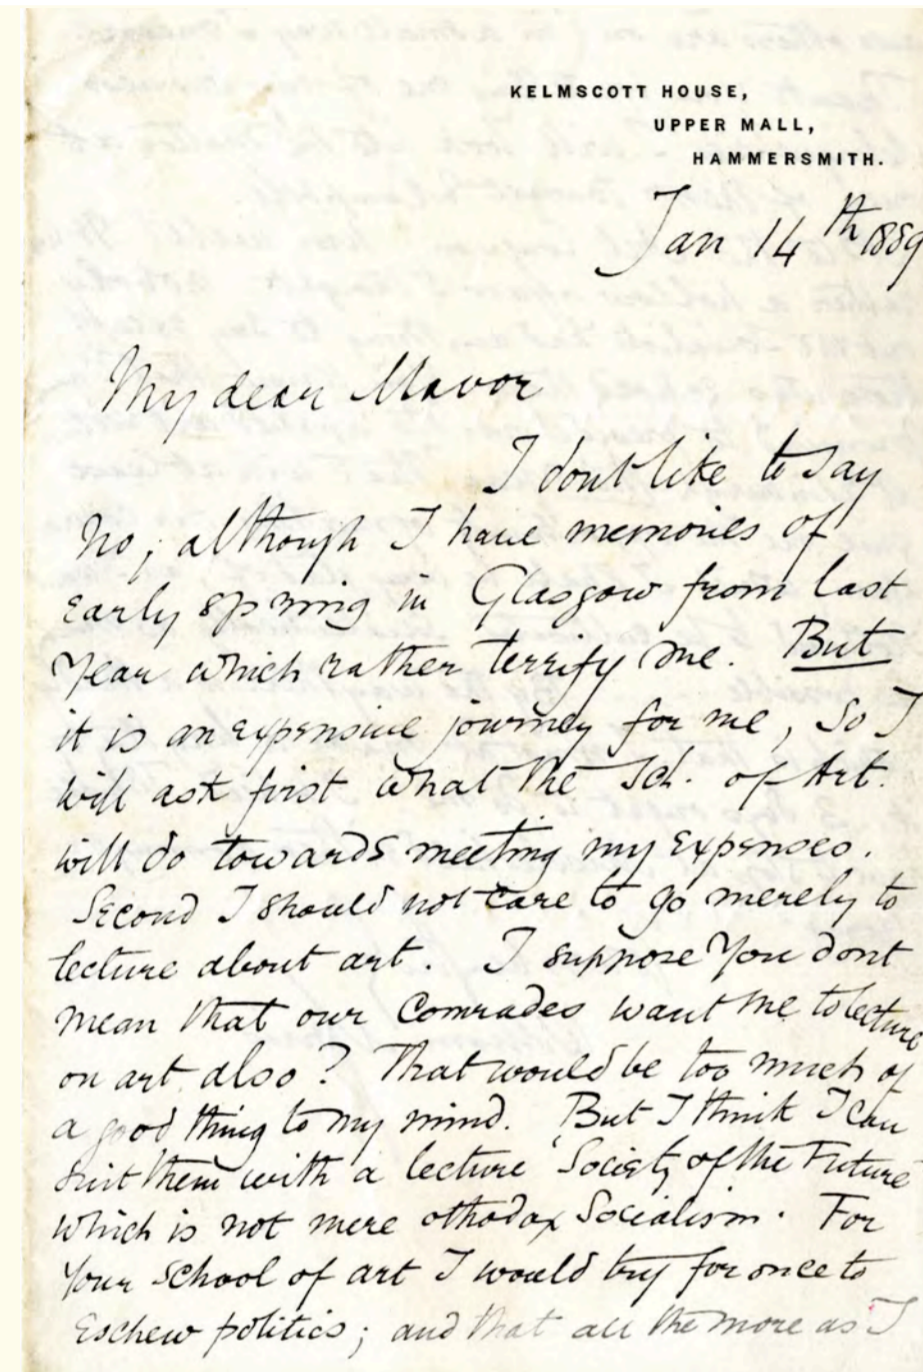 KELMSCOTT HOUSE,
UPPER MALL,
HAMMERSMITH.
Jan 14th 1889
My dear Mavor
I dont like to say
no, although I have memories of
early spring in Glasgow from last
year which rather terrify me. But
it is an expensive journey for me, so I
will ask first what the Sch. of Art.
will do towards meeting my expenses.
Second I should not care to go merely to
lecture about art. I suppose you dont
mean that our comrades want me to lecture
on art also? That would be too much of
a good thing to my mind. But I think I can
suit them with a lecture 'Society of the Future
which is not mere othodox Socialism. For
your school of art I would try for once to
eschew politics; and that all the more as I